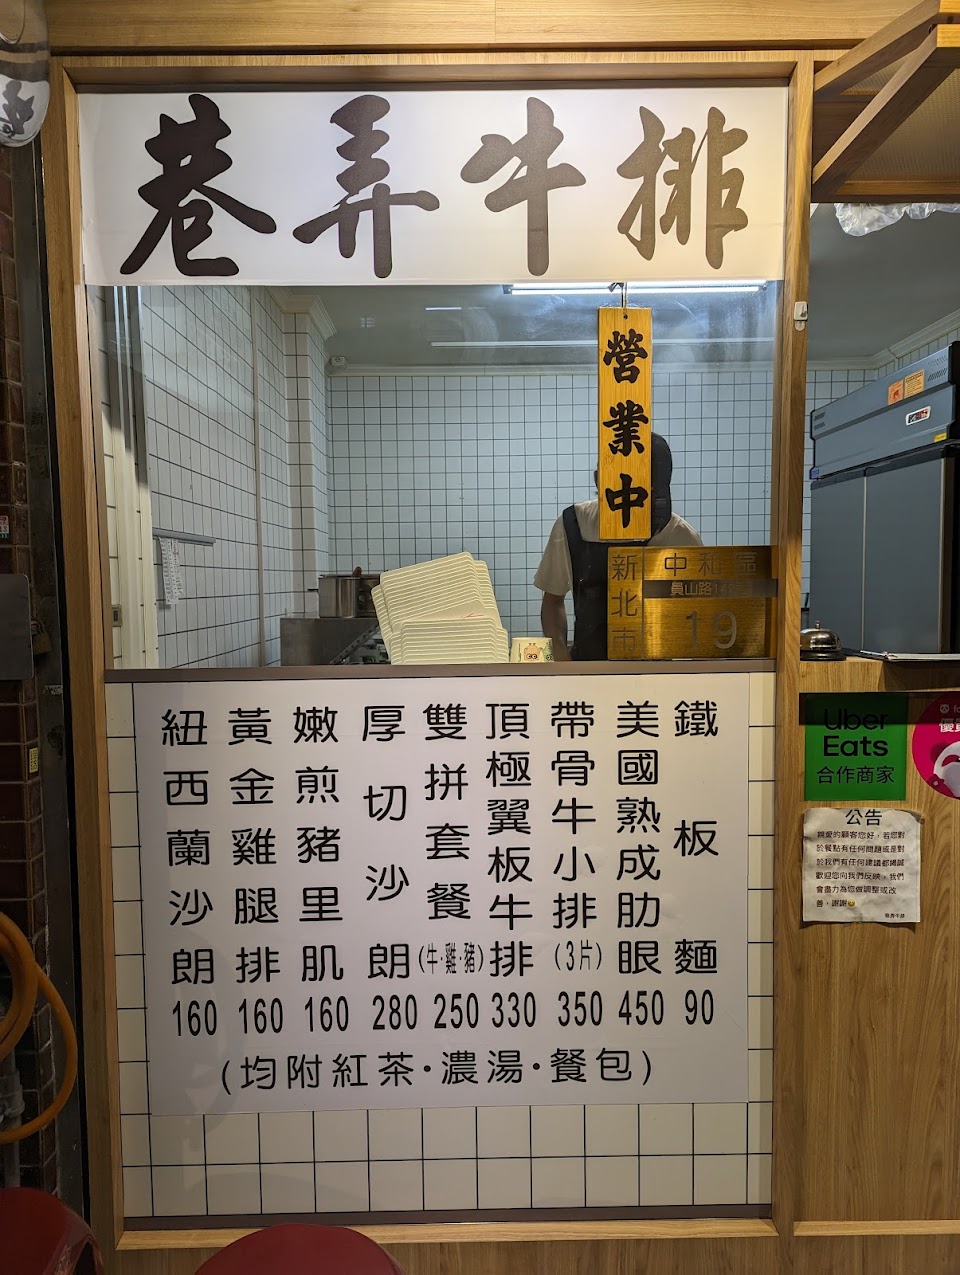 巷弄牛排
營業中
新北市
中和區
員山路
19
鐵板麵 90
美國熟成肋眼 450
帶骨牛小排(3片) 350
頂極翼板牛排 330
雙拼套餐(牛·雞·豬) 250
厚切沙朗 280
嫩煎豬里肌 160
黃金雞腿排 160
紐西蘭沙朗 160
(均附紅茶·濃湯·餐包)
Uber
Eats
合作商家
公告
親愛的顧客您好，若您對
於餐點有任何問題或是對
於我們有任何建議都竭誠
歡迎您向我們反映，我們
會盡力為您做調整或改
善，謝謝
巷弄牛排